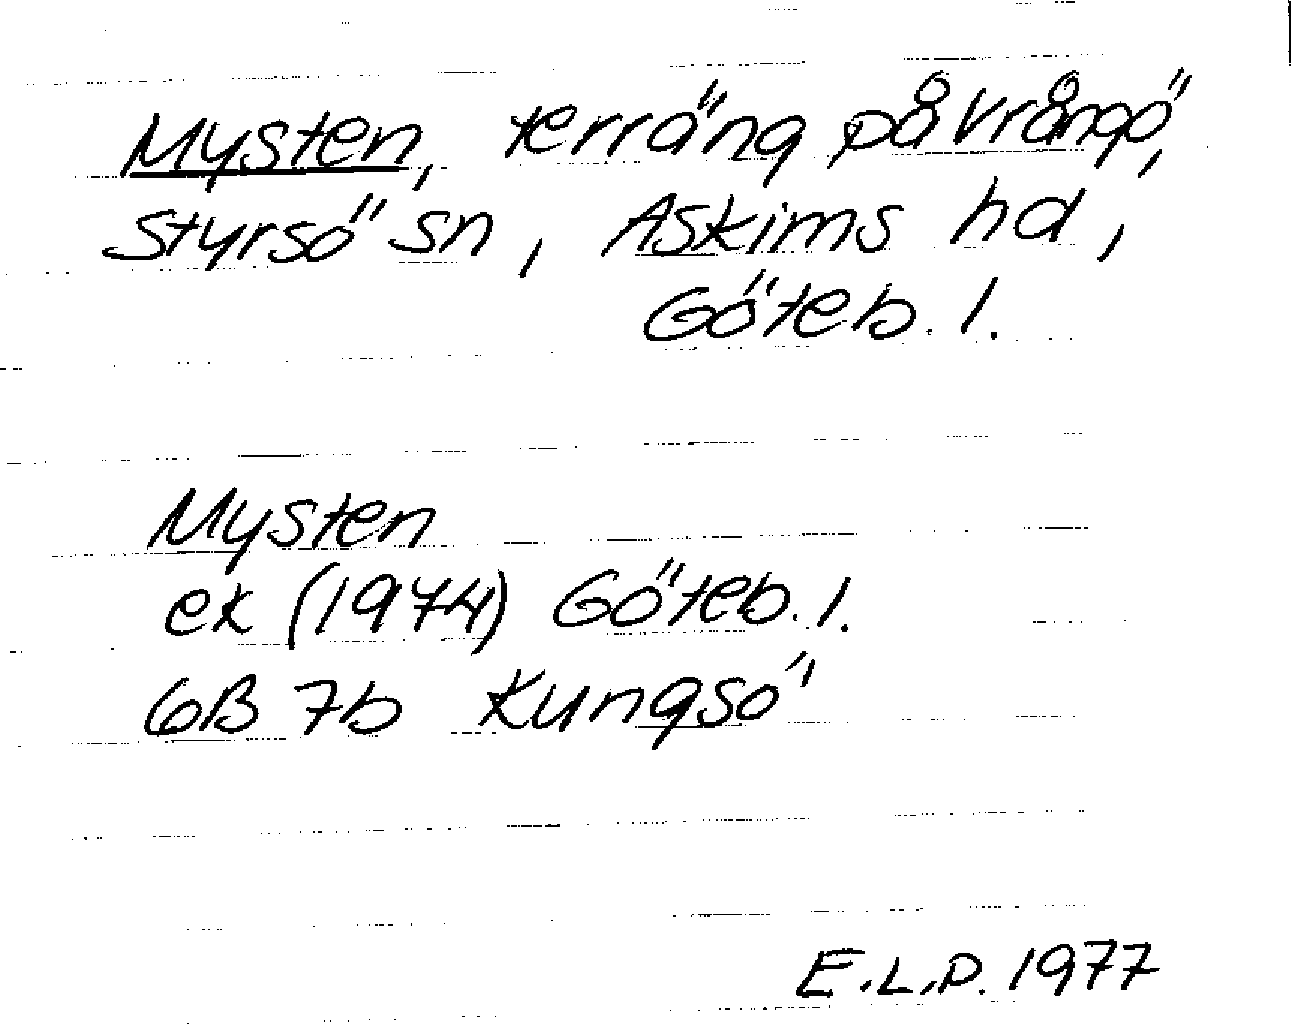 Mysten, terräng på Vrångö,
Styrsö sn, Askims hd,
Göteb. l.
Mysten
ek (1974) Göteb. l.
6B 7b Kungsö
E.L.D. 1977